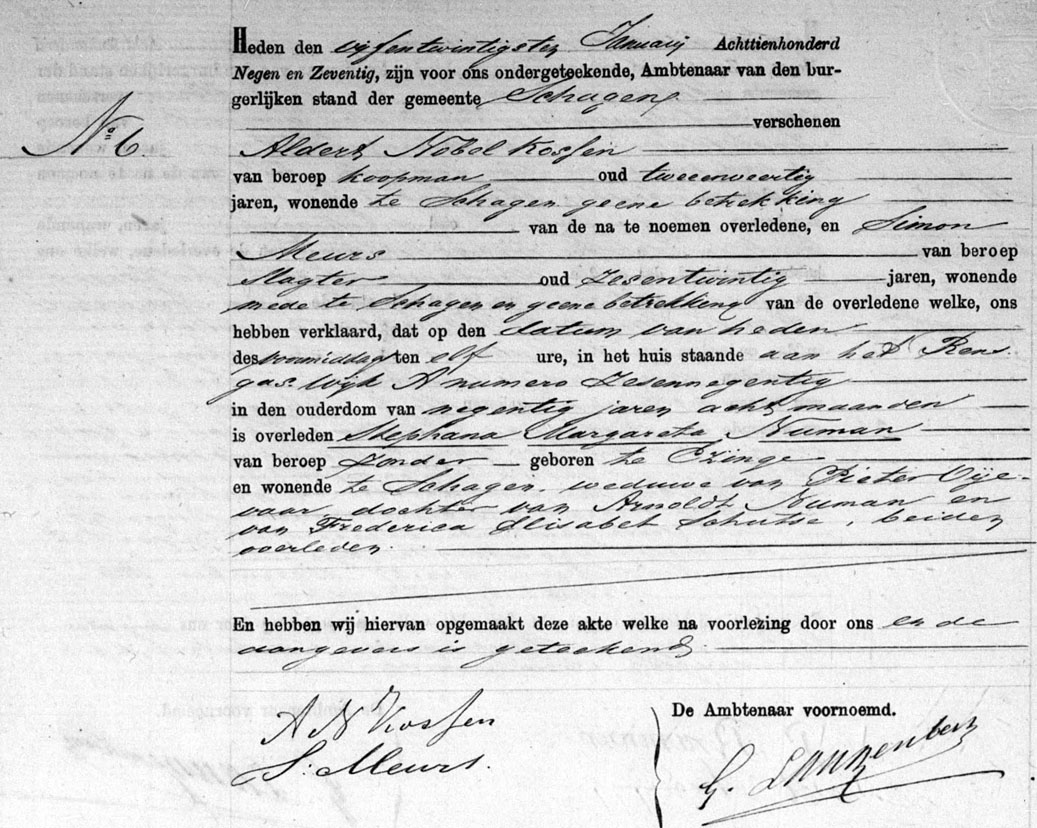 Heden den vijfentwintigsten Januarij Achttienhonderd
Negen en Zeventig, zijn voor ons ondergeteekende, Ambtenaar van den bur-
gerlijken stand der gemeente Schagen
verschenen
No 6
Aldert Nobel Kossen
van beroep koopman oud tweeenveertig
jaren, wonende te Schagen geene betrekking
van de na te noemen overledene, en Simon
Meurs van beroep
Slagter oud zesentwintig jaren, wonende
mede te Schagen en geene betrekking van de overledene welke, ons
hebben verklaard, dat op den datum van heden
des voormiddag ten elf ure, in het huis staande aan het Rens
gas Wijk A numero zesennegentig
in den ouderdom van negentig jaren acht maanden
is overleden Stephana Margareta Numan
van beroep zonder geboren te Ezinge
en wonende te Schagen weduwe van Pieter Oije-
vaar, dochter van Arnoldt Numan en
van Frederica Elisabet Schutse, beiden
overleden.
En hebben wij hiervan opgemaakt deze akte welke na voorlezing door ons en de
aangevers is geteekend
A N Kossen
S. Meurs.
De Ambtenaar voornoemd.
G. Langenberg